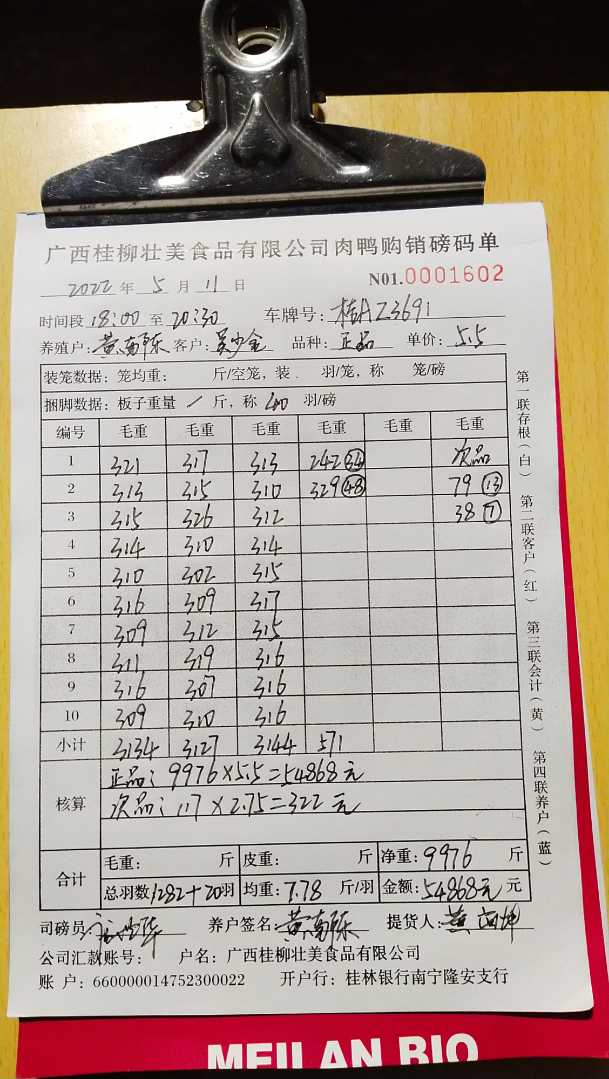 广西桂柳壮美食品有限公司肉鸭购销磅码单
2022 年 5 月 11 日 N01.0001602
时间段 18:00 至 20:30 车牌号: 桂AZ3691
养殖户: 黄南东 客户: 吴少金 品种: 正品 单价: 5.5
装笼数据: 笼均重: 斤/空笼, 装 羽/笼, 称 笼/磅
捆脚数据: 板子重量 / 斤, 称 40 羽/磅
编号 毛重 毛重 毛重 毛重 毛重 毛重
1 321 317 313 242 34 次品
2 313 315 310 329 48 79 13
3 315 326 312 38 7
4 314 310 314
5 310 302 315
6 316 309 317
7 309 312 315
8 311 319 316
9 316 307 316
10 309 310 316
小计 3134 3127 3144 571
核算
正品: 9976×5.5=54868元
次品: 117×2.75=322元
合计
毛重: 斤 皮重: 斤 净重: 9976 斤
总羽数 1282+20羽 均重: 7.78 斤/羽 金额: 54868元 元
司磅员: 养户签名: 黄南东 提货人: 黄
公司汇款账号: 户名: 广西桂柳壮美食品有限公司
账 户: 660000014752300022 开户行: 桂林银行南宁隆安支行
第一联存根(白) 第二联客户(红) 第三联会计(黄) 第四联养户(蓝)
MEILAN BIO